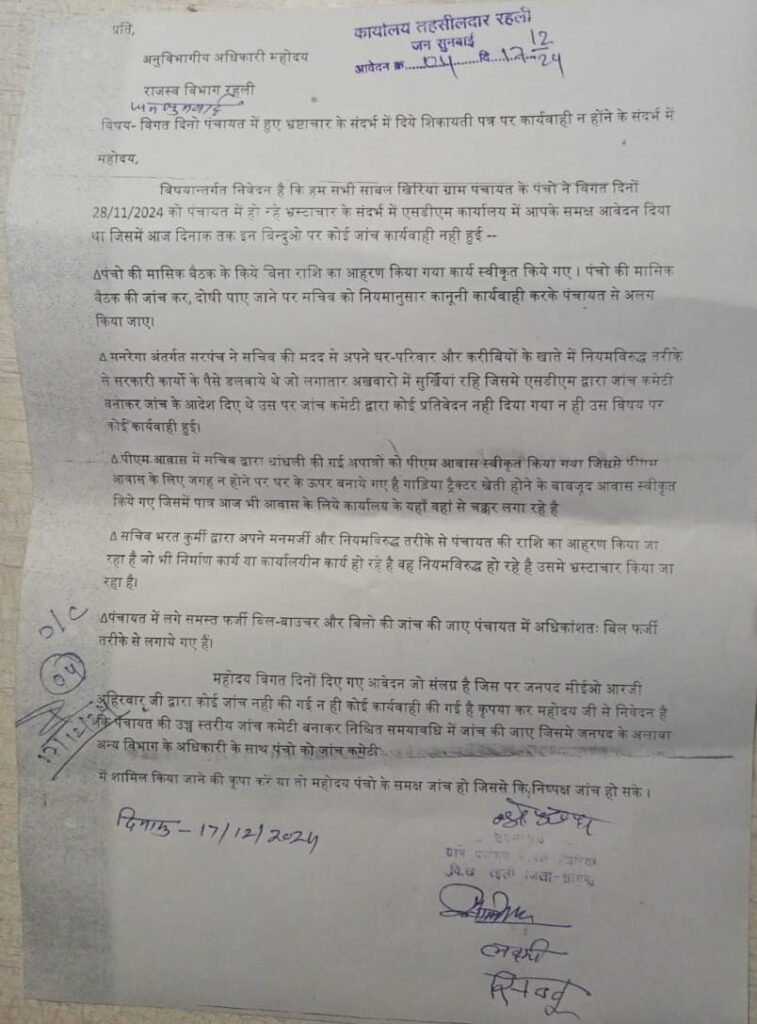 कार्यालय तहसीलदार रहली
जन सुनवाई
आवेदन क्र.....04.....दि.17-12/24
प्रति,
अनुविभागीय अधिकारी महोदय
राजस्व विभाग रहली
जनसुनवाई
विषय- विगत दिनो पंचायत में हुए भ्रष्टाचार के संदर्भ में दिये शिकायती पत्र पर कार्यवाही न होंने के संदर्भ में
महोदय,
विषयान्तर्गत निवेदन है कि हम सभी साबल खिरिया ग्राम पंचायत के पंचो ने विगत दिनों
28/11/2024 को पंचायत में हो रहे भ्रस्टाचार के संदर्भ में एसडीएम कार्यालय में आपके समक्ष आवेदन दिया
था जिसमें आज दिनाक तक इन विन्दुओ पर कोई जांच कार्यवाही नही हुई --
∆पंचो की मासिक बैठक के किये बिना राशि का आहरण किया गया कार्य स्वीकृत किये गए । पंचो की मासिक
बैठक की जांच कर, दोषी पाए जाने पर सचिव को नियमानुसार कानूनी कार्यवाही करके पंचायत से अलग
किया जाए।
∆ मनरेगा अंतर्गत सरपंच ने सचिव की मदद से अपने घर-परिवार और करीबियों के खाते में नियमविरुद्ध तरीके
से सरकारी कार्यो के पैसे डलवाये थे जो लगातार अखवारो में सुर्खियां रहि जिसमे एसडीएम द्वारा जांच कमेटी
वनाकर जांच के आदेश दिए थे उस पर जांच कमेटी द्वारा कोई प्रतिवेदन नही दिया गया न ही उस विषय पर
कोई कार्यवाही हुई।
∆ पीएम आवास में सचिव द्वारा धांधली की गई अपात्रो को पीएम आवास स्वीकृत किया गया जिसमे पीएम
आवास के लिए जगह न होने पर घर के ऊपर बनाये गए है गाड़िया ट्रैक्टर खेती होने के बाबजूद आवास स्वीकृत
किये गए जिसमें पात्र आज भी आवास के लिये कार्यालय के यहाँ वहां से चक्कर लगा रहे है
∆ सचिव भरत कुर्मी द्वारा अपने मनमर्जी और नियमविरुद्ध तरीके से पंचायत की राशि का आहरण किया जा
रहा है जो भी निर्माण कार्य या कार्यालयीन कार्य हो रहे है वह नियमविरुद्ध हो रहे है उसमे भ्रस्टाचार किया जा
रहा है।
∆पंचायत में लगे समस्त फर्जी बिल-बाउचर और बिलो की जांच की जाए पंचायत में अधिकांशतः बिल फर्जी
तरीके से लगाये गए हैं।
महोदय विगत दिनों दिए गए आवेदन जो संलग्न है जिस पर जनपद सीईओ आरजी
अहिरवार जी द्वारा कोई जांच नही की गई न ही कोई कार्यवाही की गई है कृपया कर महोदय जी से निवेदन है
कि पंचायत की उच्च स्तरीय जांच कमेटी बनाकर निश्चित समयावधि में जांच की जाए जिसमे जनपद के अलावा
अन्य विभाग के अधिकारी के साथ पंचो को जांच कमेटी
में शामिल किया जाने की कृपा करें या तो महोदय पंचो के समक्ष जांच हो जिससे कि निष्पक्ष जांच हो सके ।
O/C
04
17/12/24
दिनाक - 17/12/2024